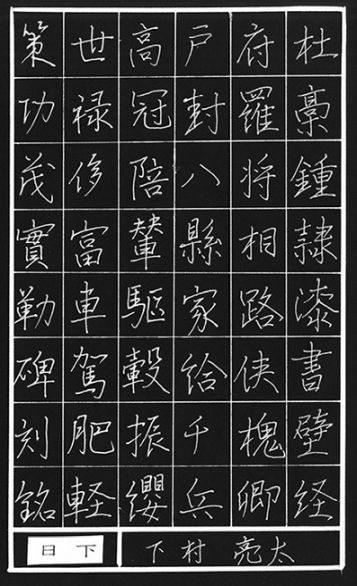 杜稾鍾隷漆書壁経
府羅将相路侠槐卿
戸封八縣家給千兵
高冠陪輦驅轂振纓
世禄侈富車駕肥軽
策功茂實勒碑刻銘
日下 下村 亮太